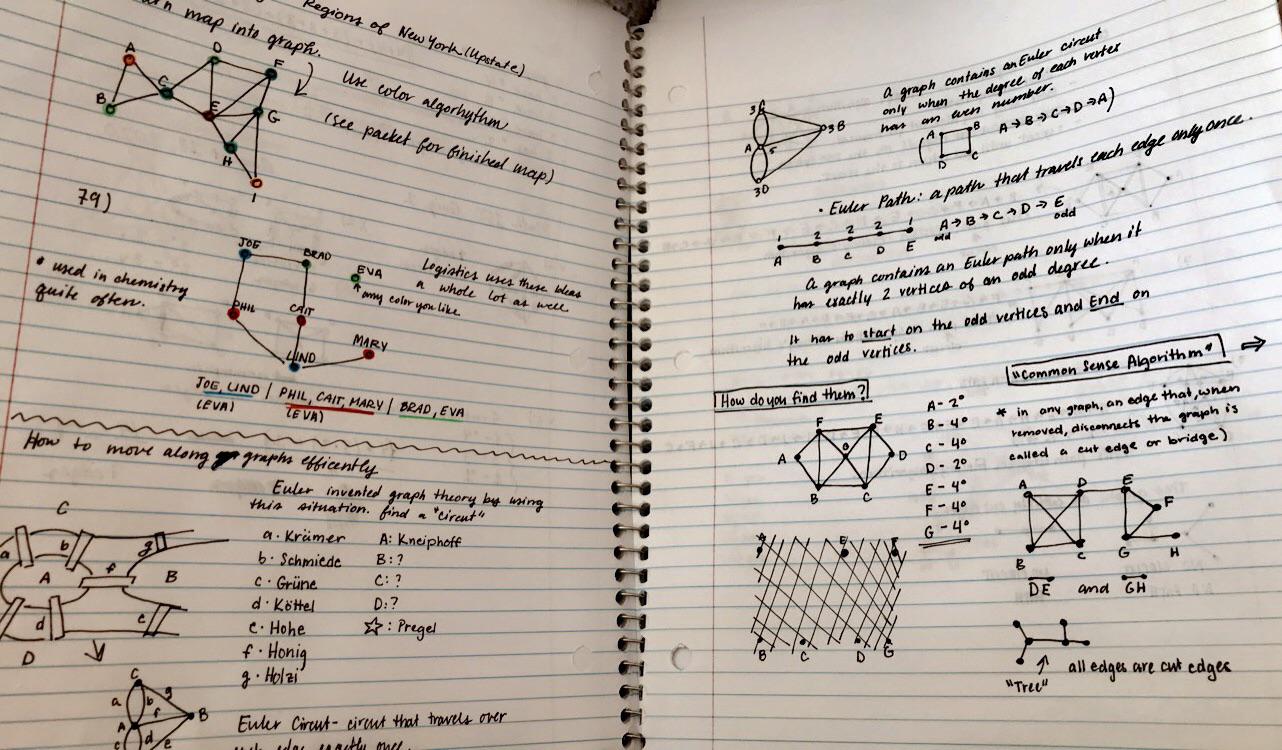 Regions of New York (Upstate)
map into graph.
A
D
F
C
B
E
G
H
I
Use color algorhythm
(see packet for finished map)
79)
JOE
BRAD
EVA
any color you like
PHIL
CAIT
LIND
MARY
* used in chemistry
quite often.
Logistics uses these ideas
a whole lot as well
JOE, LIND / PHIL, CAIT, MARY / BRAD, EVA
(EVA) (EVA)
How to move along graphs efficently
Euler invented graph theory by using
this situation. find a "circut"
C
a
b
g
A
f
B
d
e
D
a. Krämer A: Kneiphoff
b. Schmiede B: ?
c. Grüne C: ?
d. Köttel D: ?
e. Hohe ☆: Pregel
f. Honig
g. Holzi
C
a
b
g
A
f
B
c
d
e
Euler Circut- circut that travels over
edge exactly once.
3C
3B
A
5
3D
A graph contains an Euler circut
only when the degree of each vertex
has an even number.
(
A
B
D
C
A→B→C→D→A)
• Euler Path: a path that travels each edge only once.
1 2 2 2 1
A B C D E
A→B→C→D→E
odd odd
A graph contains an Euler path only when it
has exactly 2 vertices of an odd degree.
It has to start on the odd vertices and End on
the odd vertices.
How do you find them?
"Common Sense Algorithm" ⇒
F
E
A
D
B
C
A - 2°
B - 4°
C - 4°
D - 2°
E - 4°
F - 4°
G - 4°
* in any graph, an edge that, when
removed, disconnects the graph is
called a cut edge or bridge)
A
D
E
F
B
C
G
H
DE and GH
"Tree"
all edges are cut edges
E
B
C
D
G